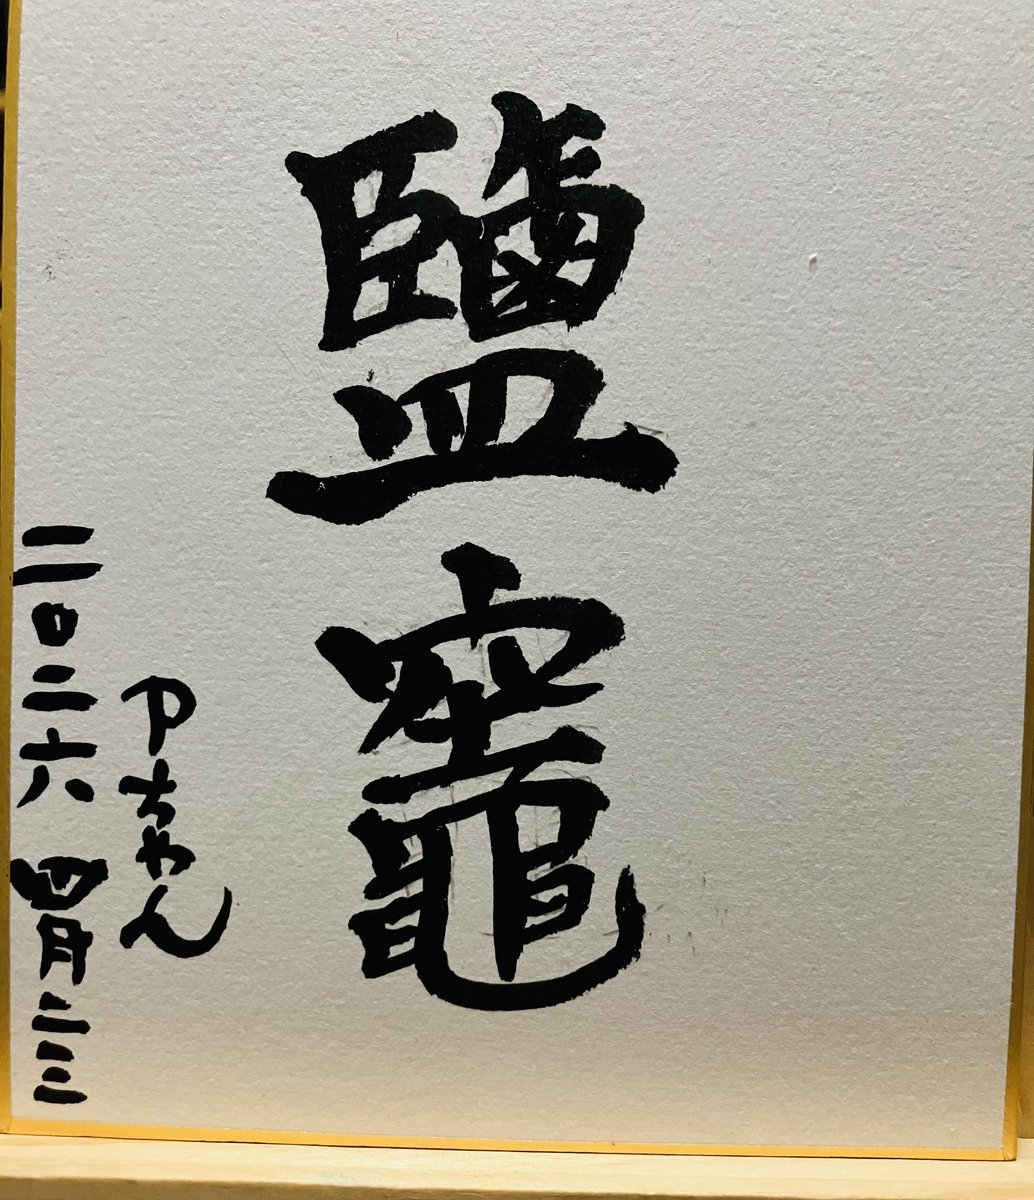 鹽竈
Pちゃん
二〇二六 四月二三